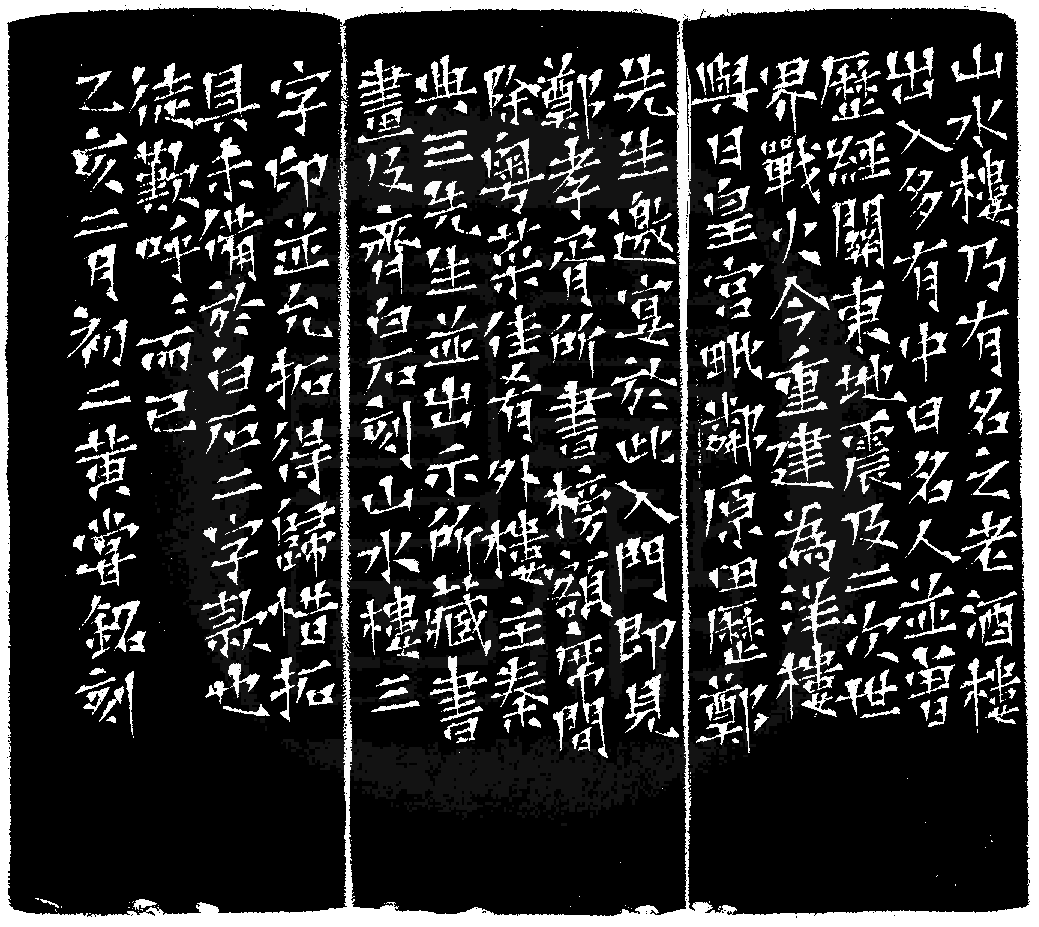 山水樓乃有名之老酒樓
出入多有中日名人並曾
歷經關東地震及二次世
界戰火今重建為洋樓
與日皇宮毗鄰原田歷鄭
先生邀宴於此入門即見
鄭孝胥所書榜額席間
除粵菜佳肴外樓主秦
典三先生並出示所藏書
畫及齊白石刻山水樓三
字印並允拓得歸惜拓
具未備於白石二字款也
徒歎呼〻而已
乙亥二月初二黄嘗銘刻